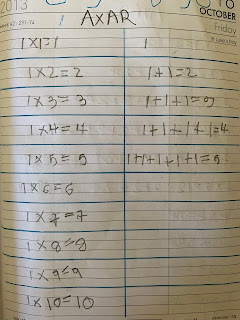 2013
10
OCTOBER
Friday
AXAR
1x1=1 1
1x2=2 1+1=2
1x3=3 1+1+1=3
1x4=4 1+1+1+1=4
1x5=5 1+1+1+1+1=5
1x6=6
1x7=7
1x8=8
1x9=9
1x10=10